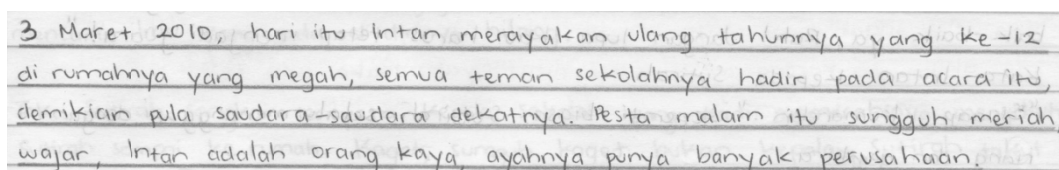 3 Maret 2010, hari itu Intan merayakan ulang tahunnya yang ke-12
di rumahnya yang megah, semua teman sekolahnya hadir pada acara itu,
demikian pula saudara-saudara dekatnya. Pesta malam itu sungguh meriah
wajar, Intan adalah orang kaya, ayahnya punya banyak perusahaan.